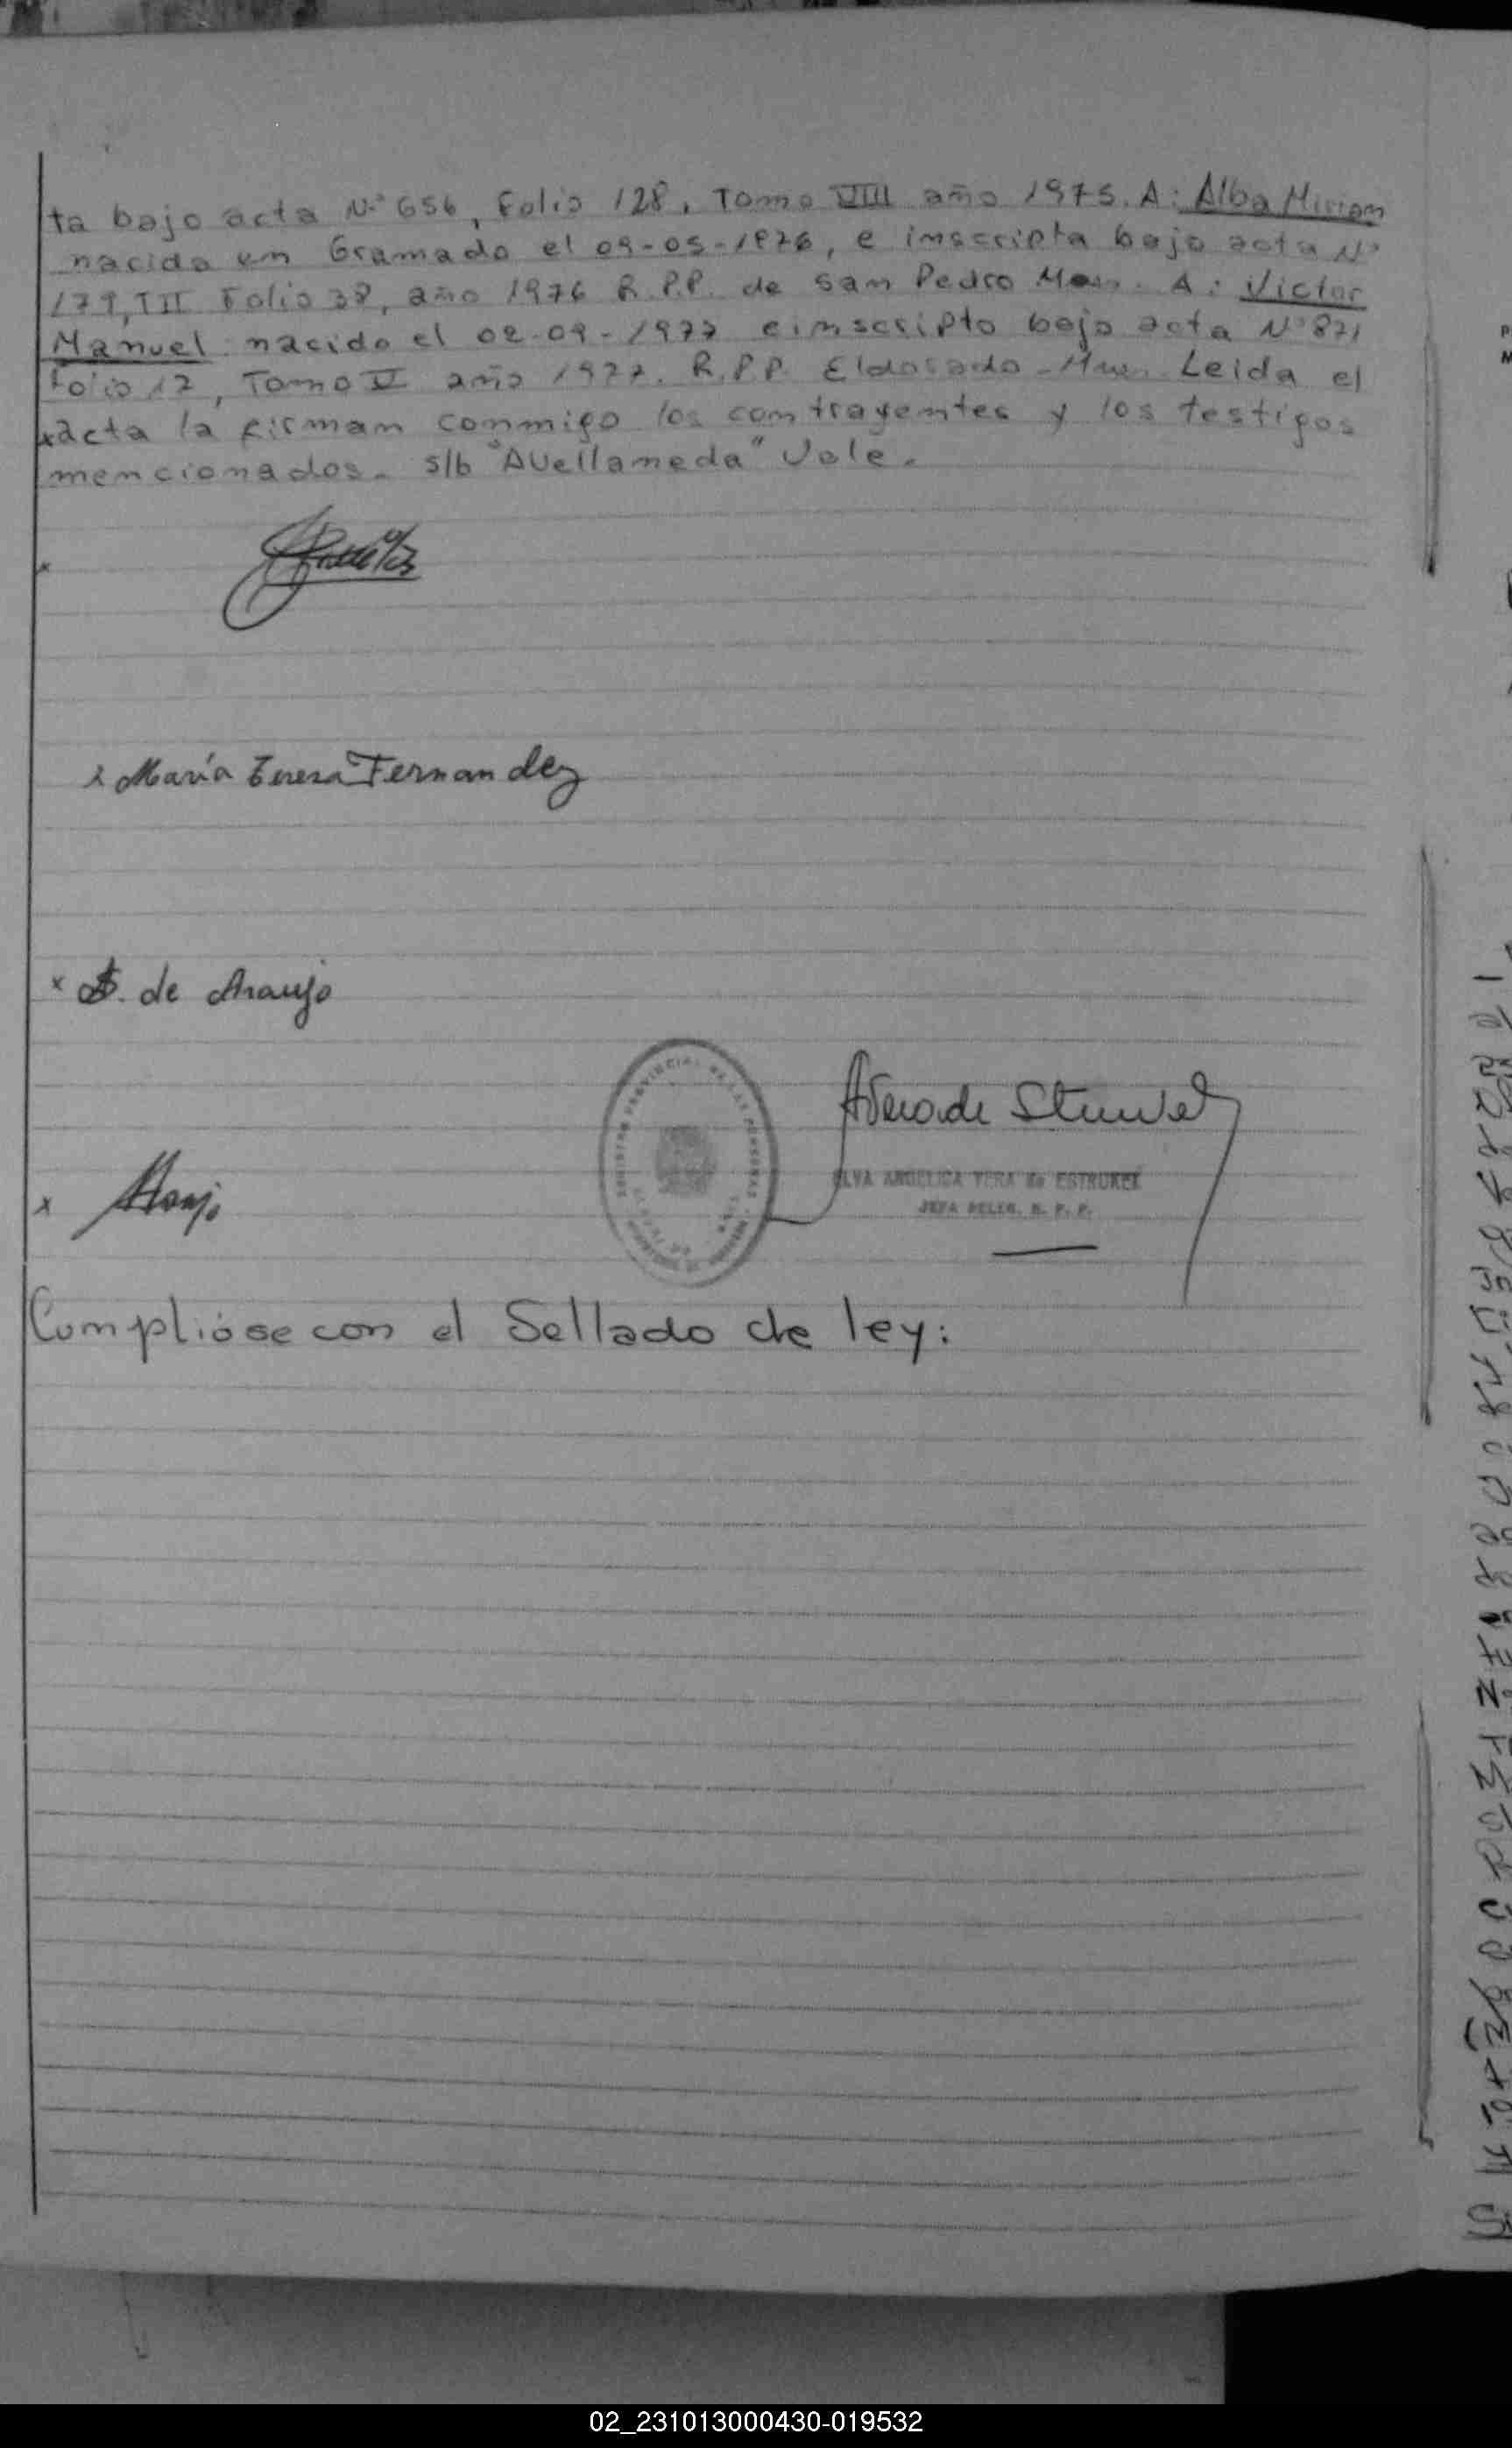 ta bajo acta Nº 656, Folio 128, Tomo VIII año 1975. A: Alba Miriam
nacida en Gramado el 09-05-1976, e inscripta bajo acta Nº
179, TII Folio 38, año 1976 R.P.P. de San Pedro Mnes. A: Victor
Manuel nacido el 02-09-1977 e inscripto bajo acta Nº 871
Folio 17, Tomo V año 1977. R.P.P. Eldorado - Mnes. Leida el
acta la firman conmigo los contrayentes y los testigos
mencionados. s/b "Avellaneda" Vale.
x
x María Teresa Fernandez
x A. de Araujo
REGISTRO PROVINCIAL DE LAS PERSONAS
ELVA ANGELICA VERA de ESTRUKEL
JEFA DELEG. R. P. P.
x Araujo
Complióse con el Sellado de ley:
02_231013000430-019532